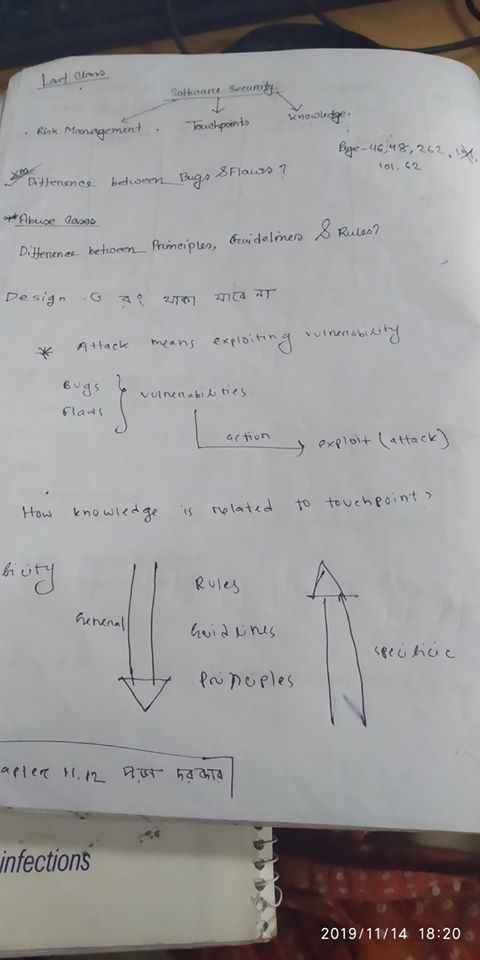 Last Class
Software Security
Risk Management. Touchpoints Knowledge.
Page - 46, 48, 262,
101, 62
Difference between Bugs & Flaws?
** Abuse Cases
Difference between Principles, Guidelines & Rules?
Design - এ রং থাকা যাবে না
* Attack means exploiting vulnerability
Bugs
Flaws } vulnerabilities
action → exploit (attack)
How knowledge is related to touchpoint?
Rules
General Guidlines specific
Principles
11, 12 পড়া দরকার
infections
2019/11/14 18:20